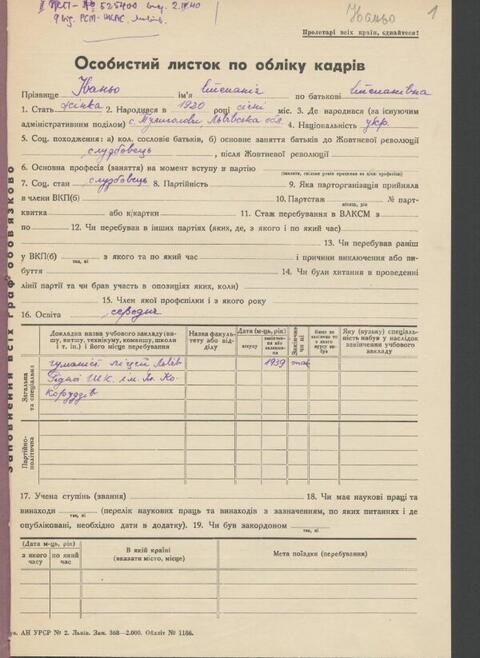 Каньо 1
№ 525400
Пролетарі всіх країн, єднайтеся!
Особистий листок по обліку кадрів
Прізвище Каньо ім'я Степанія по батькові Степанівна
1. Стать жінка 2. Народився в 1920 році січні міс. 3. Де народився (за існуючим
адміністративним поділом) с. Львівська обл. 4. Національність укр.
5. Соц. походження: а) кол. сословіє батьків, б) основне заняття батьків до Жовтневої революції
службовець, після Жовтневої революції
6. Основна професія (заняття) на момент вступу в партію
7. Соц. стан службовець 8. Партійність 9. Яка парторганізація прийняла
в члени ВКП(б) 10. Партстаж № парт-
місяць, рік
квитка або к/картки 11. Стаж перебування в ВЛКСМ з
по 12. Чи перебував в інших партіях (яких, де, з якого і по який час)
13. Чи перебував раніш
у ВКП(б) з якого та по який час і причини виключення або ви-
так, ні
буття 14. Чи були хитання в проведенні
лінії партії та чи брав участь в опозиціях (яких, коли)
15. Член якої профспілки і з якого року
16. Освіта середня
Загальна та спеціальна
Партійно-політична
Докладна назва учбового закладу (ви-
шу, втишу, технікуму, комвишу, школи
і т. ін.) і його місце перебування
Назва факуль-
тету або від-
ділу
Дата (м-ць, рік)
вступу
Закінчив чи ні
Яку (вузьку) спеціаль-
ність набув у наслідок
закінчення учбового
закладу
ліцей Львів 1939 так
17. Учена ступінь (звання) 18. Чи має наукові праці та
винаходи (перелік наукових праць та винаходів з зазначенням, по яких питаннях і де
так, ні
опубліковані, необхідно дати в додатку). 19. Чи був закордоном
так, ні
(Дата м-ць, рік)
з якого часу
по який час
В якій країні
(вказати місто, місце)
Мета поїздки (перебування)
АН УРСР № 2. Львів. Зам. 368—2.000. Обліт № 1186.
Заповнення всіх граф обов'язково